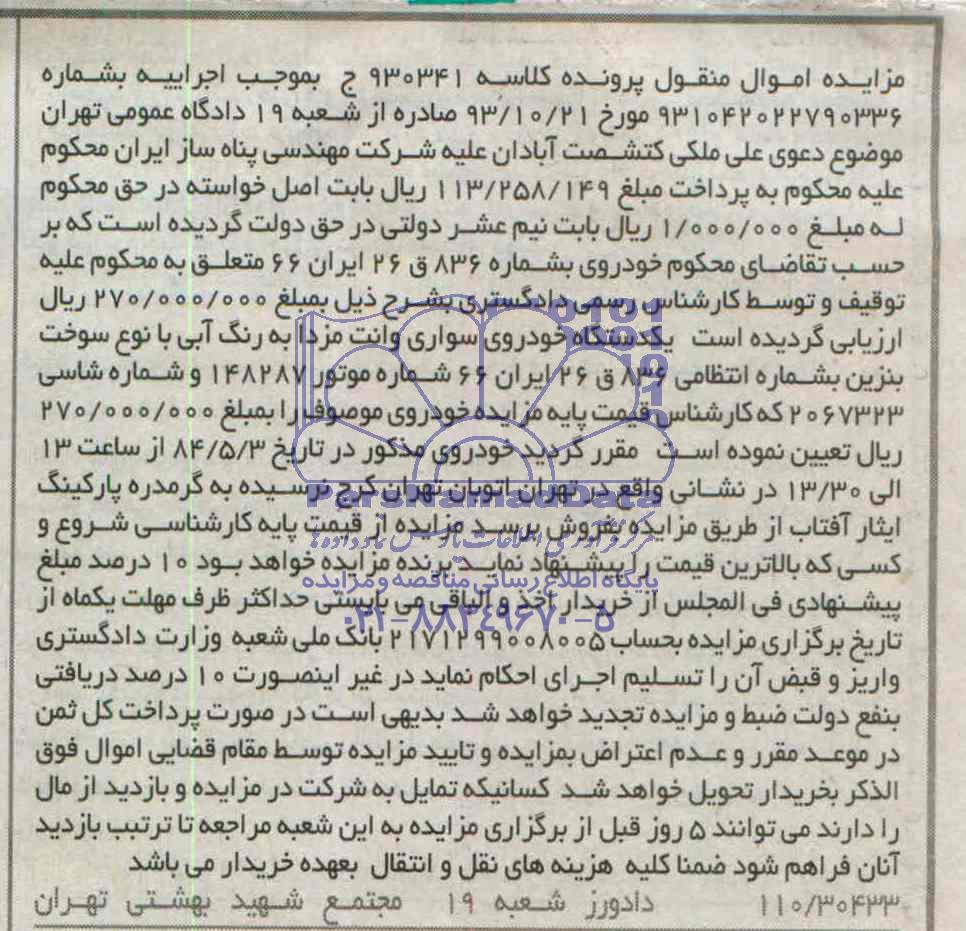 مزایده اموال منقول پرونده کلاسه ۹۳۰۳۴۱ ج بموجب اجراییه بشماره
۹۳۱۰۴۲۰۲۲۷۹۰۳۳۶ مورخ ۹۳/۱۰/۲۱ صادره از شعبه ۱۹ دادگاه عمومی تهران
موضوع دعوی علی ملکی کتشصت آبادان علیه شرکت مهندسی پناه ساز ایران محکوم
علیه محکوم به پرداخت مبلغ ۱۱۳/۲۵۸/۱۴۹ ریال بابت اصل خواسته در حق محکوم
له مبلغ ۱/۰۰۰/۰۰۰ ریال بابت نیم عشر دولتی در حق دولت گردیده است که بر
حسب تقاضای محکوم خودروی بشماره ۸۳۶ ق ۲۶ ایران ۶۶ متعلق به محکوم علیه
توقیف و توسط کارشناس رسمی دادگستری بشرح ذیل بمبلغ ۲۷۰/۰۰۰/۰۰۰ ریال
ارزیابی گردیده است یکدستگاه خودروی سواری وانت مزدا به رنگ آبی با نوع سوخت
بنزین بشماره انتظامی ۸۳۶ ق ۲۶ ایران ۶۶ شماره موتور ۱۴۸۲۸۷ و شماره شاسی
۲۰۶۷۳۲۳ که کارشناس قیمت پایه مزایده خودروی موصوف را بمبلغ ۲۷۰/۰۰۰/۰۰۰
ریال تعیین نموده است مقرر گردید خودروی مذکور در تاریخ ۸۴/۵/۳ از ساعت ۱۳
الی ۱۳/۳۰ در نشانی واقع در تهران اتوبان تهران کرج نرسیده به گرمدره پارکینگ
ParsNamadData
ایثار آفتاب از طریق مزایده بفروش برسد مزایده از قیمت پایه کارشناسی شروع و
مرکز فرآوری اطلاعات پارس نماد داده ها
کسی که بالاترین قیمت را پیشنهاد نماید برنده مزایده خواهد بود ۱۰ درصد مبلغ
پایگاه اطلاع رسانی مناقصه و مزایده
پیشنهادی فی المجلس از خریدار اخذ و الباقی می بایستی حداکثر ظرف مهلت یکماه از
۰۲۱-۸۸۳۴۹۶۷۰-۵
تاریخ برگزاری مزایده بحساب ۲۱۷۱۲۹۹۰۰۸۰۰۵ بانک ملی شعبه وزارت دادگستری
واریز و قبض آن را تسلیم اجرای احکام نماید در غیر اینصورت ۱۰ درصد دریافتی
بنفع دولت ضبط و مزایده تجدید خواهد شد بدیهی است در صورت پرداخت کل ثمن
در موعد مقرر و عدم اعتراض بمزایده و تایید مزایده توسط مقام قضایی اموال فوق
الذکر بخریدار تحویل خواهد شد کسانیکه تمایل به شرکت در مزایده و بازدید از مال
را دارند می توانند ۵ روز قبل از برگزاری مزایده به این شعبه مراجعه تا ترتیب بازدید
آنان فراهم شود ضمنا کلیه هزینه های نقل و انتقال بعهده خریدار می باشد
۱۱۰/۳۰۴۳۳ دادورز شعبه ۱۹ مجتمع شهید بهشتی تهران